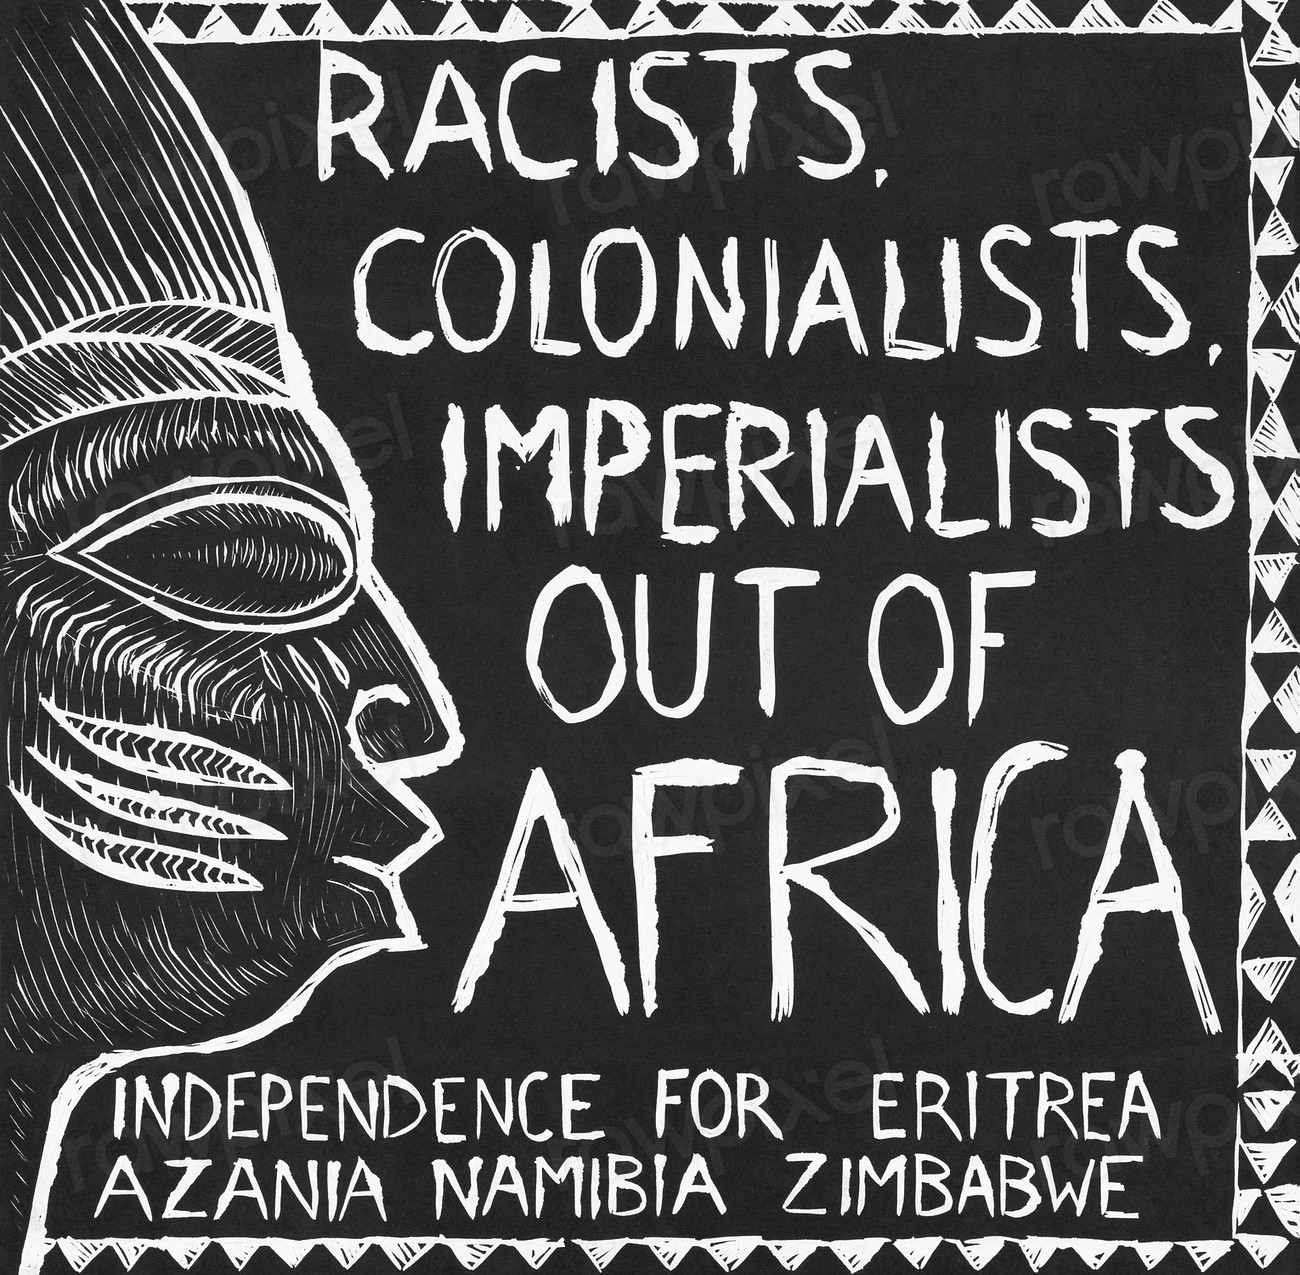 RACISTS,
COLONIALISTS,
IMPERIALISTS
OUT OF
AFRICA
INDEPENDENCE FOR ERITREA
AZANIA NAMIBIA ZIMBABWE
rawpixel